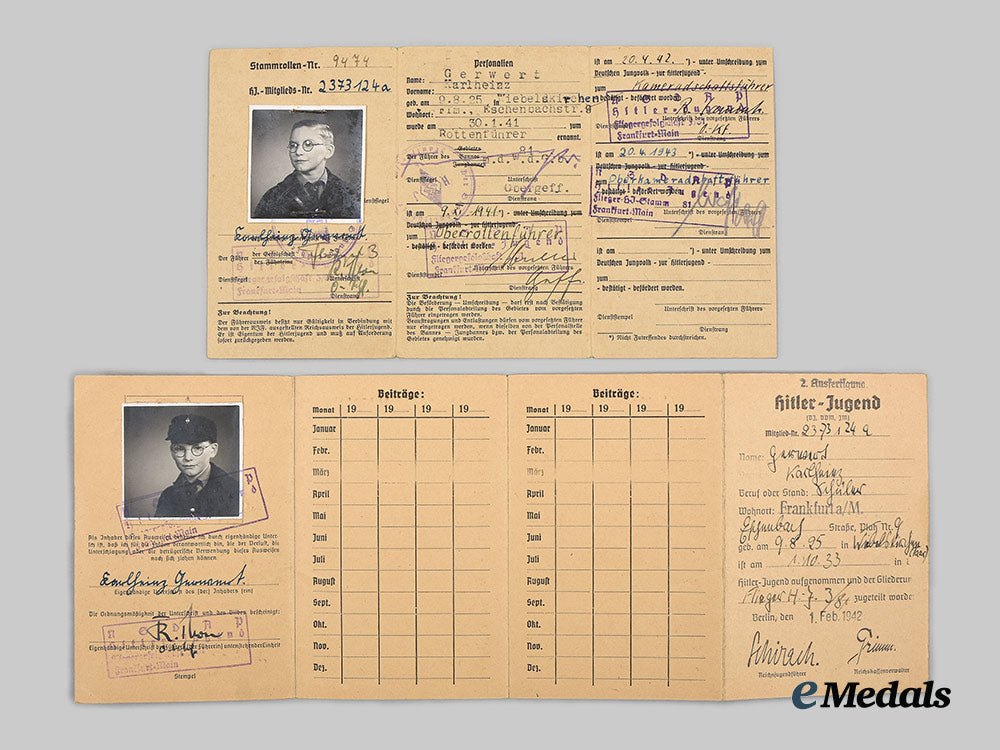 Stammrollen-Nr. 9474
HJ.-Mitglieds-Nr. 2373124a
Karlheinz
Der Führer der Gefolgschaft
des Fähnleins
Dienstsiegel:
Frankfurt-Main
Dienstrang
Zur Beachtung!
Der Führerausweis besitzt nur Gültigkeit in Verbindung mit
dem von der RJF. ausgestellten Reichsausweis der Hitlerjugend.
Er ist Eigentum der Hitlerjugend und muß auf Anforderung
sofort zurückgegeben werden.
Personalien
Name: Gerwert
Vorname: Karlheinz
geb. am 9.8.25 in Wiebelskirchen
Wohnort: Ffm., Eschenbachstr.9
wurde am 30.1.41 zum
Rottenführer ernannt.
Der Führer des Gebietes
Bannes 81
Jungbannes
Dienstsiegel
Unterschrift
Obergeff.
ist am 9. 1941 *) - unter Umschreibung vom
Deutschen Jungvolk - zur Hitlerjugend
zum Oberrottenführer
- bestätigt - befördert worden.
Frankfurt-Main
Unterschrift des vorgesetzten Führers
Dienststempel
Dienstrang
Zur Beachtung!
Die Beförderung - Umschreibung - darf erst nach Bestätigung
durch die Personalabteilung des Gebietes vom vorgesetzten Führer
eingetragen werden.
Beauftragungen und Entlastungen dürfen vom vorgesetzten Führer
nur eingetragen werden, wenn dieselben von der Personalstelle
des Bannes - Jungbannes bzw. der Personalabteilung des
Gebietes genehmigt wurden.
ist am 20.4.42. *) - unter Umschreibung vom
Deutschen Jungvolk - zur Hitlerjugend
zum Kameradschaftsführer
- bestätigt - befördert worden.
N S D A P
Hitler-Jugend
Fliegergefolgschaft
Frankfurt-Main
Unterschrift des vorgesetzten Führers
Dienstrang
ist am 20.4.1943 *) - unter Umschreibung vom
Deutschen Jungvolk - zur Hitlerjugend
zum Oberkameradschaftsführer
- bestätigt - befördert worden.
Flieger-HJ-Stamm 81
Frankfurt/Main
Unterschrift des vorgesetzten Führers
Dienstrang
ist am *) - unter Umschreibung vom
Deutschen Jungvolk - zur Hitlerjugend
zum
- bestätigt - befördert worden.
Unterschrift des vorgesetzten Führers
Dienststempel
Dienstrang
*) Nicht Zutreffendes durchstreichen.
Als Inhaber dieses Ausweises
Karlheinz
Eigenhändige Unterschrift des (der) Inhabers (rin)
Die Ordnungsmäßigkeit der Unterschrift und des Bildes bescheinigt:
Frankfurt-Main
Stempel
Beiträge:
Monat 19 19 19 19
Januar
Febr.
März
April
Mai
Juni
Juli
August
Sept.
Okt.
Nov.
Dez.
Beiträge:
Monat 19 19 19 19
Januar
Febr.
März
April
Mai
Juni
Juli
August
Sept.
Okt.
Nov.
Dez.
2. Ausfertigung
Hitler-Jugend
(DJ, BDM, JM)
Mitglied-Nr. 2373124a
Name:
Karlheinz
Beruf oder Stand: Schüler
Wohnort: Frankfurt a/M.
Straße, Platz Nr. 9
geb. am 9.8.25 in
ist am 1.10.33 in
Hitler-Jugend aufgenommen und der Gliederun
zugeteilt worde
Berlin, den 1. Feb. 1942
Schirach.
Reichsjugendführer
Reichskassenverwalter
eMedals